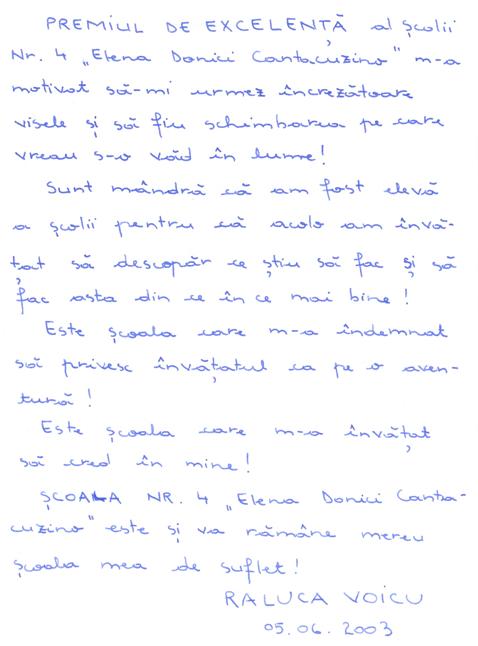 PREMIUL DE EXCELENȚĂ al școlii
Nr. 4 „Elena Donici Cantacuzino" m-a
motivat să-mi urmez încrezătoare
visele și să fiu schimbarea pe care
vreau s-o văd în lume!
Sunt mândră că am fost elevă
a școlii pentru că acolo am învă-
țat să descopăr ce știu să fac și să
fac asta din ce în ce mai bine!
Este școala care m-a îndemnat
să privesc învățatul ca pe o aven-
tură!
Este școala care m-a învățat
să cred în mine!
ȘCOALA NR. 4 „Elena Donici Canta-
cuzino" este și va rămâne mereu
școala mea de suflet!
RALUCA VOICU
05.06.2003